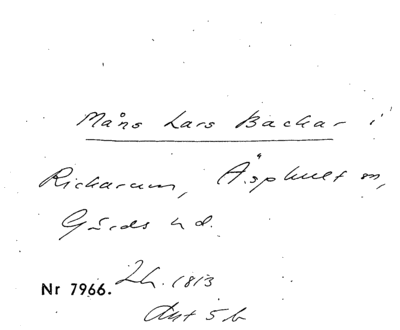 Måns Lars Backar i
Rickarum, Äsphult sn,
Gärds hd.
Nr 7966. Lh. 1813
Avt 5 b